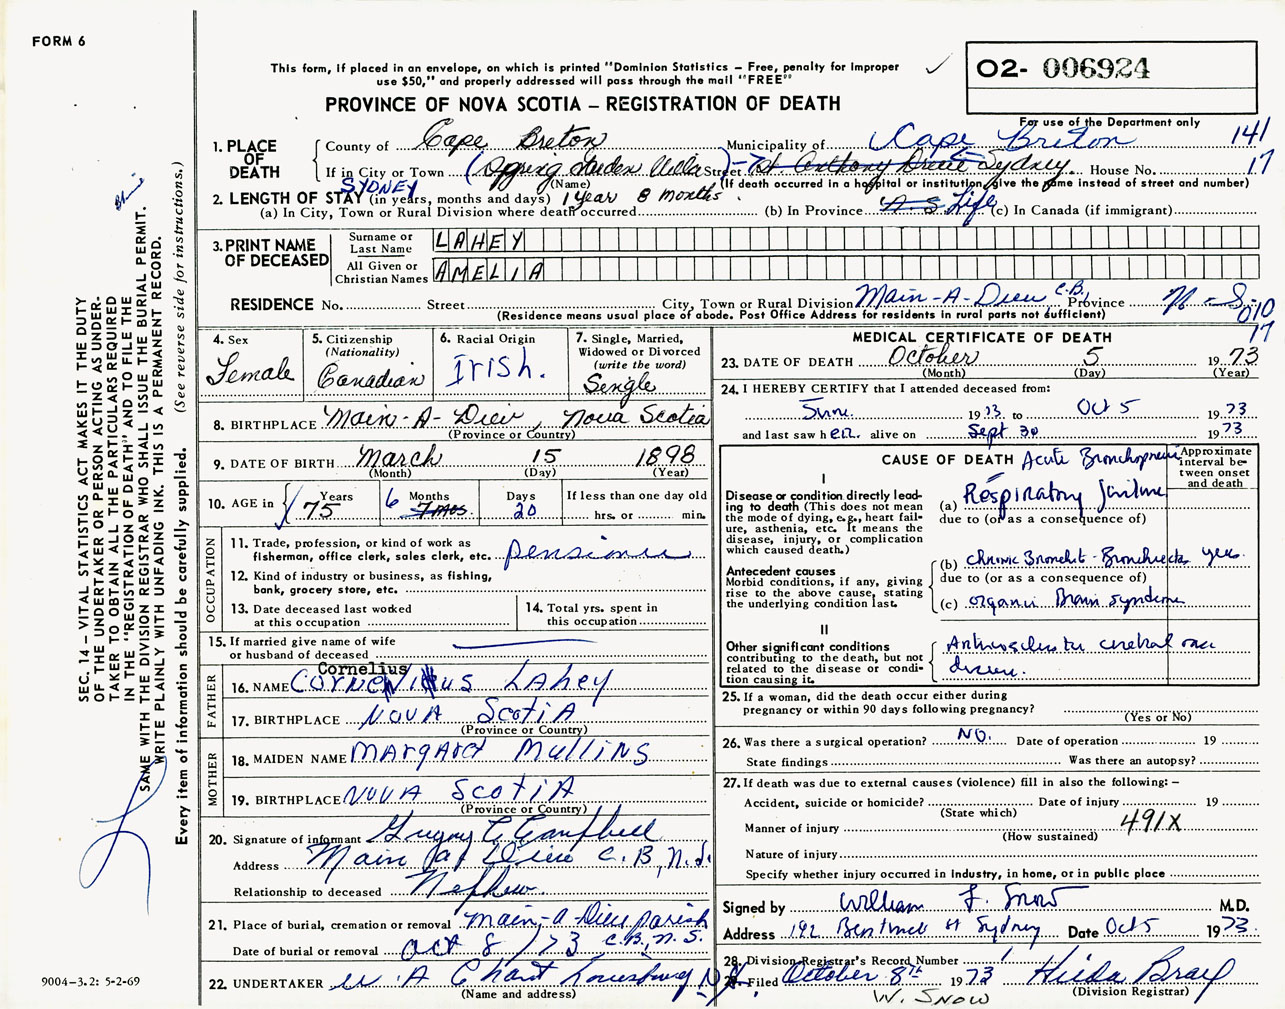 FORM 6
This form, if placed in an envelope, on which is printed "Dominion Statistics – Free, penalty for improper
use $50," and properly addressed will pass through the mail "FREE"
O2- 006924
PROVINCE OF NOVA SCOTIA – REGISTRATION OF DEATH
For use of the Department only
1. PLACE OF DEATH
County of Cape Breton Municipality of Cape Breton 141
If in City or Town (Spring Garden Villa) Street St. Anthony Drive Sydney House No. 17
(Name) (If death occurred in a hospital or institution, give the name instead of street and number)
SYDNEY
2. LENGTH OF STAY (in years, months and days) 1 year 8 months.
(a) In City, Town or Rural Division where death occurred (b) In Province N.S. Life (c) In Canada (if immigrant)
3. PRINT NAME OF DECEASED
Surname or Last Name LAHEY
All Given or Christian Names AMELIA
RESIDENCE No. Street City, Town or Rural Division Main-A-Dieu C.B. Province N-S.
(Residence means usual place of abode. Post Office Address for residents in rural parts not sufficient)
010
17
4. Sex
Female
5. Citizenship
(Nationality)
Canadian
6. Racial Origin
Irish.
7. Single, Married,
Widowed or Divorced
(write the word)
Single
8. BIRTHPLACE Main-A-Dieu, Nova Scotia
(Province or Country)
9. DATE OF BIRTH March 15 1898
(Month) (Day) (Year)
10. AGE in Years Months Days If less than one day old
75 6 7 mos 20 hrs. or min.
OCCUPATION
11. Trade, profession, or kind of work as
fisherman, office clerk, sales clerk, etc. pensioner
12. Kind of industry or business, as fishing,
bank, grocery store, etc.
13. Date deceased last worked
at this occupation
14. Total yrs. spent in
this occupation
15. If married give name of wife
or husband of deceased
FATHER
Cornelius
16. NAME Lahey
17. BIRTHPLACE NOVA SCOTIA
(Province or Country)
MOTHER
18. MAIDEN NAME MARGARET MULLINS
19. BIRTHPLACE NOVA SCOTIA
(Province or Country)
20. Signature of informant Gregory C. Campbell
Address Main a Dieu C.B, N.S.
Relationship to deceased Nephew.
21. Place of burial, cremation or removal Main-a-Dieu parish
Date of burial or removal Oct 8/73 C.B., N.S.
22. UNDERTAKER A Chant Louisbourg N.S.
(Name and address)
MEDICAL CERTIFICATE OF DEATH
23. DATE OF DEATH October 5 1973
(Month) (Day) (Year)
24. I HEREBY CERTIFY that I attended deceased from:
June 1973 to Oct 5 1973
and last saw her alive on Sept 30 1973
CAUSE OF DEATH Acute Bronchopneumonia
Approximate interval between onset and death
I
Disease or condition directly leading to death (This does not
mean the mode of dying, e.g., heart failure, asthenia, etc. It means the
disease, injury, or complication
which caused death.)
(a) Respiratory failure
due to (or as a consequence of)
Antecedent causes
Morbid conditions, if any, giving
rise to the above cause, stating
the underlying condition last.
(b) Chronic Bronchitis - Bronchiectasis yrs.
due to (or as a consequence of)
(c) Organic Brain Syndrome
II
Other significant conditions
contributing to the death, but not
related to the disease or condition causing it.
Arteriosclerotic cerebral vasc
disease.
25. If a woman, did the death occur either during
pregnancy or within 90 days following pregnancy?
(Yes or No)
26. Was there a surgical operation? NO. Date of operation 19
State findings Was there an autopsy?
27. If death was due to external causes (violence) fill in also the following: –
Accident, suicide or homicide? Date of injury 19
(State which)
Manner of injury 491X
(How sustained)
Nature of injury
Specify whether injury occurred in industry, in home, or in public place
Signed by William F. Snow M.D.
Address 192 Bentinck St Sydney Date Oct 5 1973.
28. Division Registrar's Record Number
29. Filed October 8th 1973 Hilda Bray
(Division Registrar)
W. SNOW
SEC. 14 – VITAL STATISTICS ACT MAKES IT THE DUTY
OF THE UNDERTAKER OR PERSON ACTING AS UNDER-
TAKER TO OBTAIN ALL THE PARTICULARS REQUIRED
IN THE "REGISTRATION OF DEATH" AND TO FILE THE
SAME WITH THE DIVISION REGISTRAR WHO SHALL ISSUE THE BURIAL PERMIT.
WRITE PLAINLY WITH UNFADING INK. THIS IS A PERMANENT RECORD.
Every item of information should be carefully supplied. (See reverse side for instructions.)
9004-3.2: 5-2-69